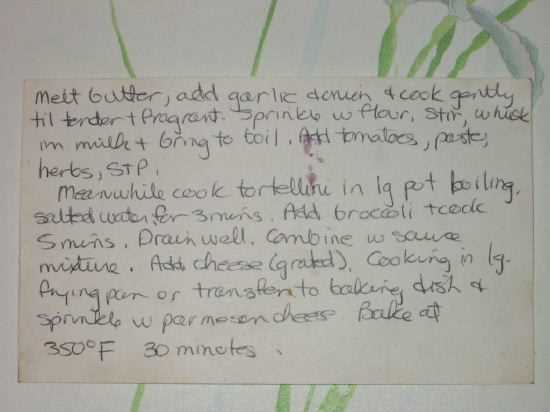 Melt butter, add garlic + onion + cook gently
til tender + fragrant. Sprinkle w flour, stir, whisk
in milk + bring to boil. Add tomatoes, paste,
herbs, S+P.
Meanwhile cook tortellini in lg pot boiling,
salted water for 3 mins. Add broccoli + cook
5 mins. Drain well. Combine w sauce
mixture. Add cheese (grated). Cooking in lg.
frying pan or transfer to baking dish +
sprinkle w parmesan cheese Bake at
350°F 30 minutes.